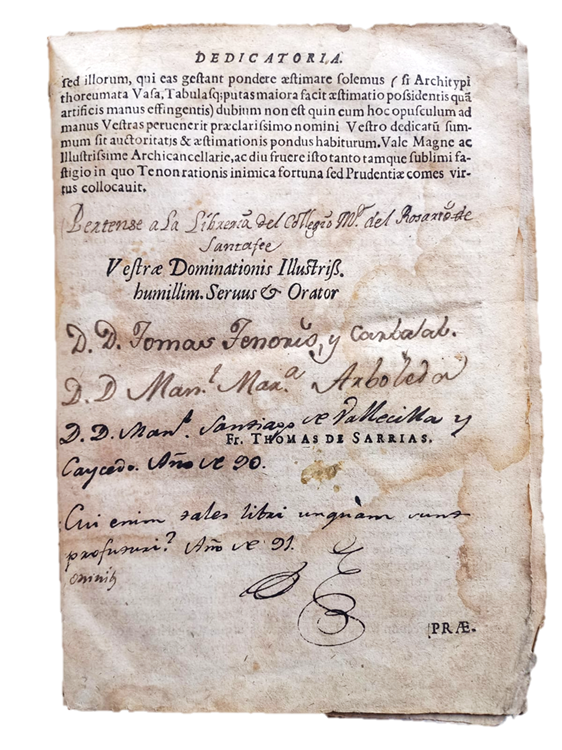 DEDICATORIA.
sed illorum, qui eas gestant pondere æstimare solemus (si Architypi
thoreumata Vasa, Tabulasq; putas maiora facit æstimatio possidentis quã
artificis manus effingentis) dubium non est quin cum hoc opusculum ad
manus Vestras peruenerit præclarissimo nomini Vestro dedicatũ sum-
mum sit auctoritatis & æstimationis pondus habiturum. Vale Magne ac
Illustrissime Archicancellarie, ac diu fruere isto tanto tamque sublimi fa-
stigio in quo Te non rationis inimica fortuna sed Prudentiæ comes vir-
tus collocauit.
Pertense a La Libreria del Collegio M.r del Rosario de
Santafee
Vestræ Dominationis Illustriss.
humillim. Seruus & Orator
D. D. Tomas Tenorio, y Carbabal.
D. D Man.l Mar.a Arboleda
D. D. Man.l Santiago de Vallecilla y
Fr. THOMAS DE SARRIAS.
Caycedo. Año de 90.
Cui enim tales libri unquam sunt
profuturi? Año de 91.
PRÆ-